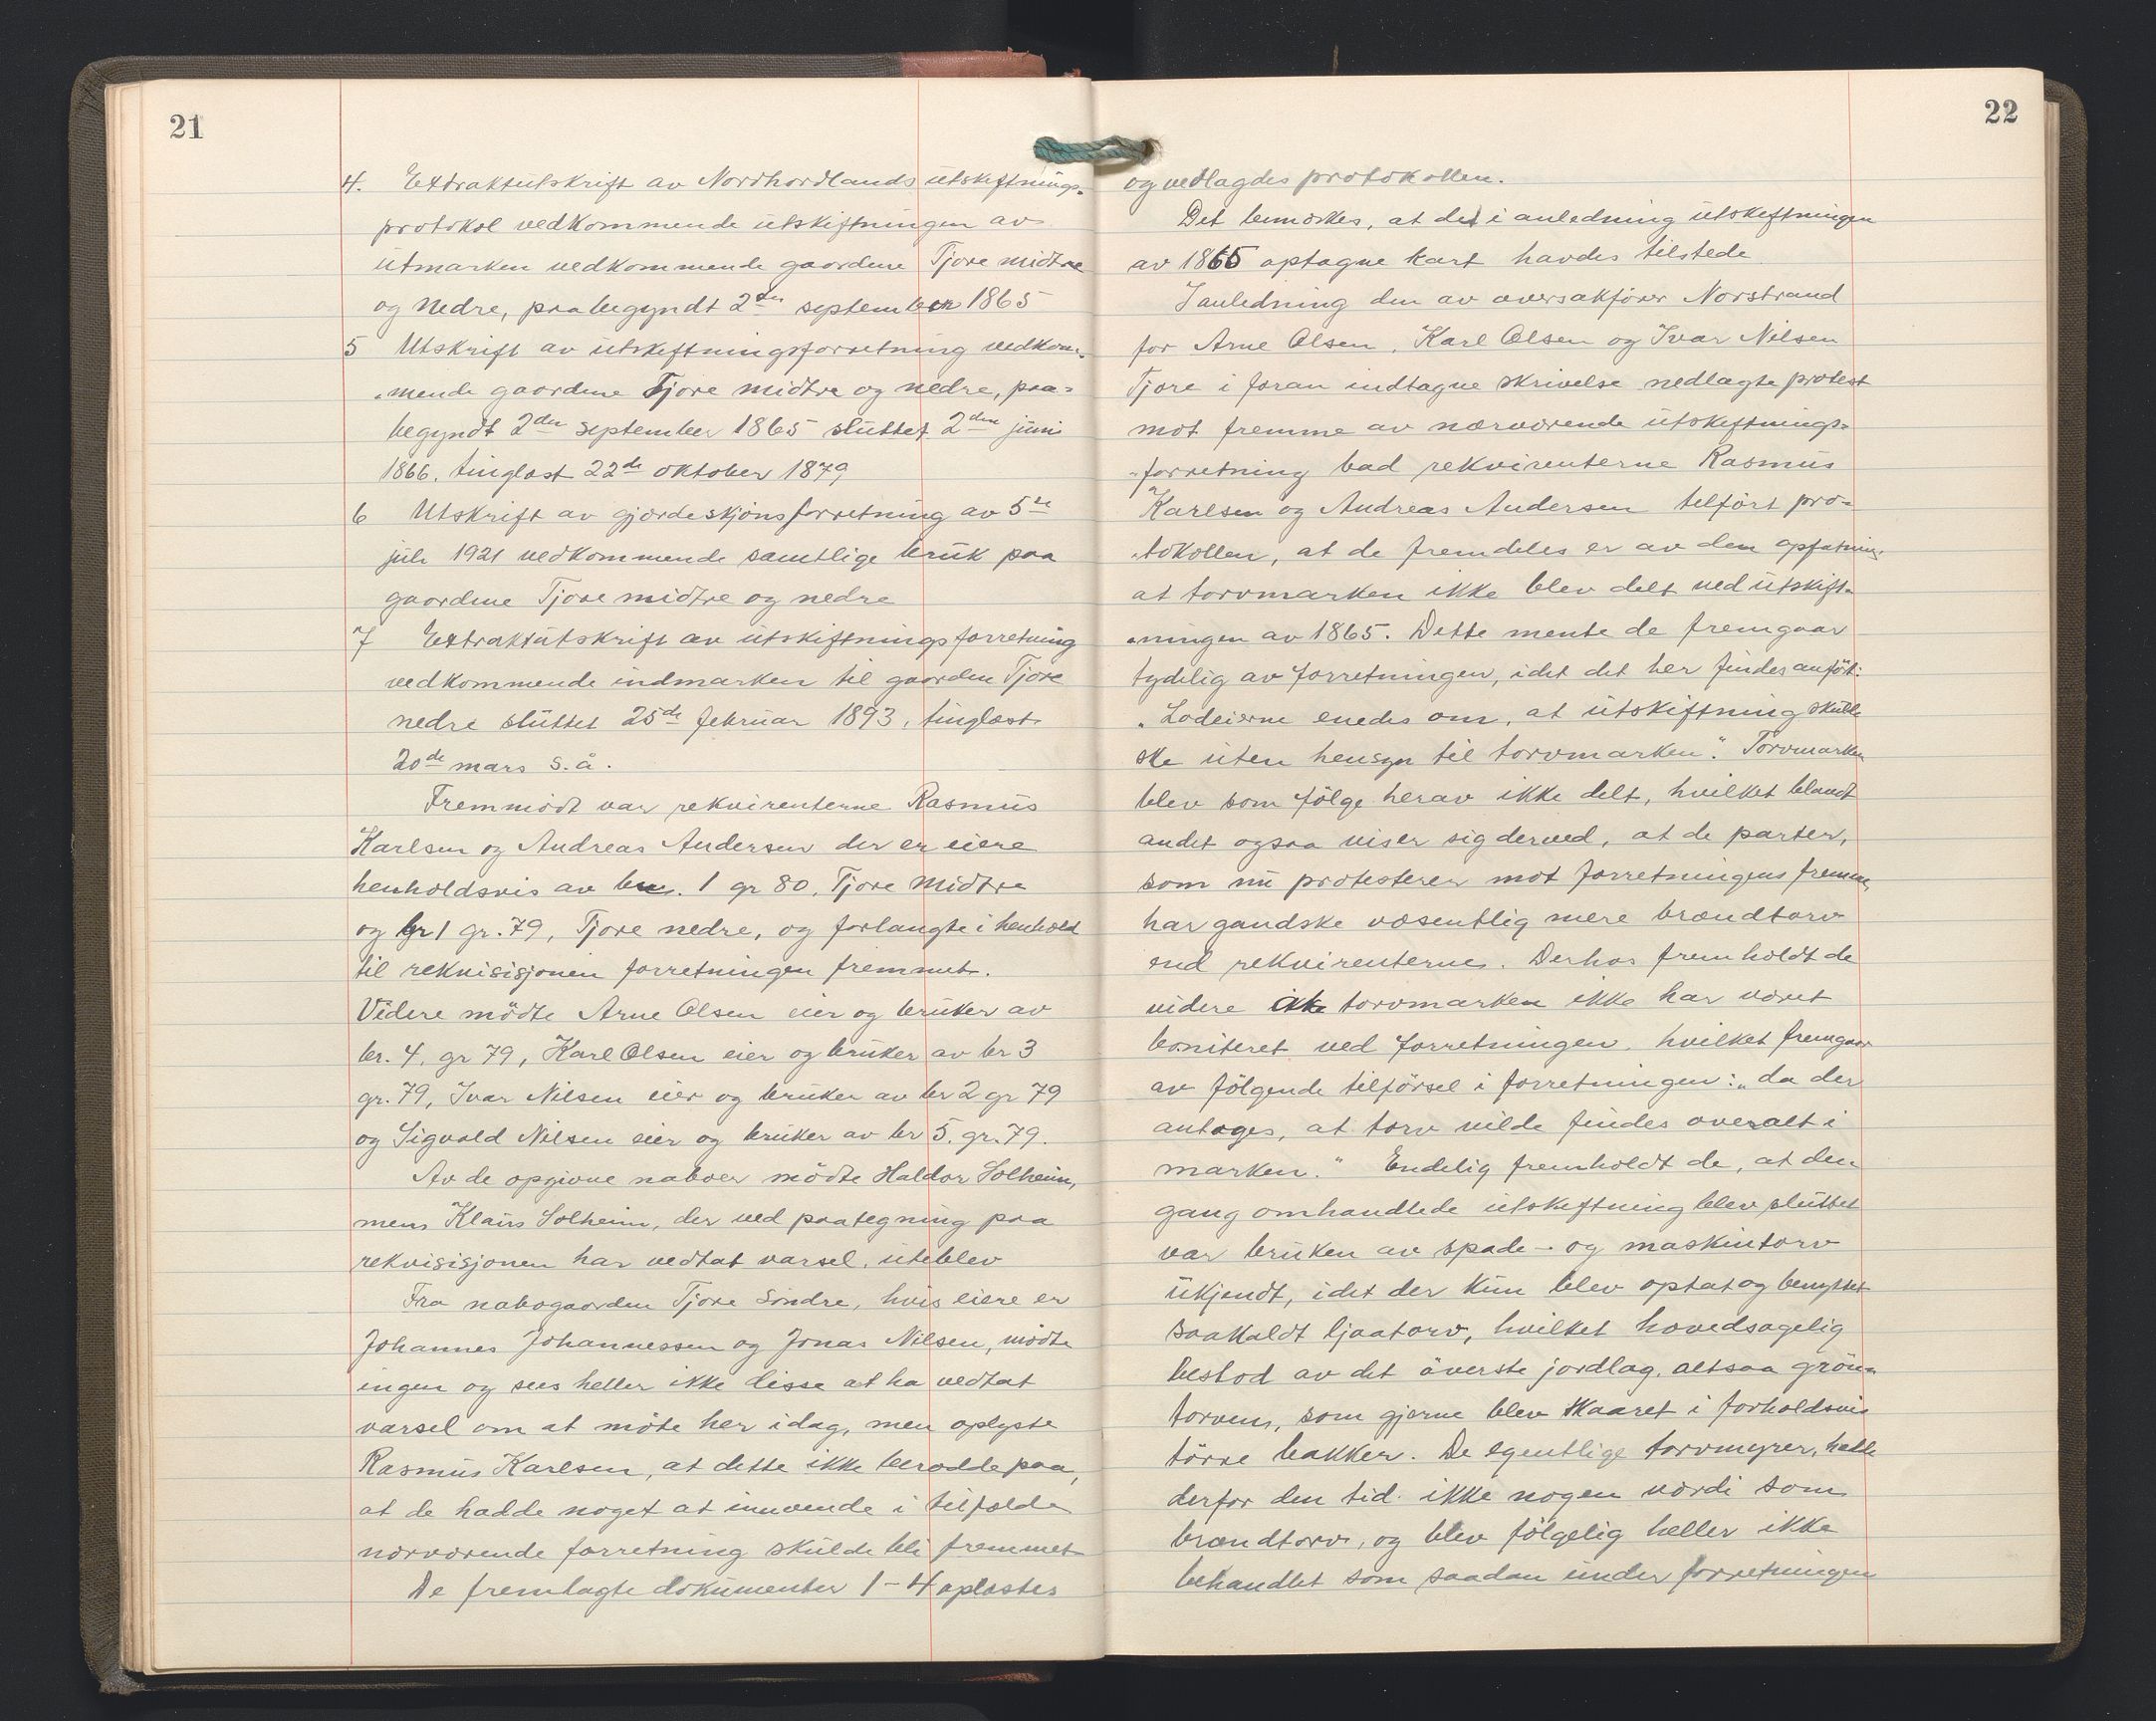 21
4. Extraktutskrift av Nordhordlands utskiftnings-
protokol vedkommende utskiftningen av
utmarken vedkommende gaardene Tjore midtre
og nedre, paabegyndt 2den september 1865
5 Utskrift av utskiftningsforretning vedkom-
mende gaardene Tjore midtre og nedre, paa-
begyndt 2den september 1865 sluttet 2den juni
1866. tinglæst 22de oktober 1879
6 Utskrift av gjærdeskjønsforretning av 5te
juli 1921 vedkommende samtlige bruk paa
gaardene Tjore midtre og nedre
7 Extraktutskrift av utskiftningsforretning
vedkommende indmarken til gaarden Tjore
nedre sluttet 25de februar 1893, tinglæst
20de mars s.å.
Fremmödt var rekvirenterne Rasmus
Karlsen og Andreas Andersen der er eiere
henholdsvis av bru. 1 gr 80, Tjore midtre
og br 1 gr. 79, Tjore nedre, og forlangte i henhold
til rekvisisjonen forretningen fremmet.
Videre mödte Arne Olsen eier og bruker av
br. 4. gr 79, Karl Olsen eier og bruker av br 3
gr. 79, Ivar Nilsen eier og bruker av br 2 gr 79
og Sigvald Nilsen eier og bruker av br 5. gr. 79.
Av de opgivne naboer mödte Haldor Solheim,
mens Klaus Solheim, der ved paategning paa
rekvisisjonen har vedtat varsel, uteblev
Fra nabogaarden Tjore Söndre, hvis eiere er
Johannes Johannessen og Jonas Nilsen, mödte
ingen og sees heller ikke disse at ha vedtat
varsel om at möte her idag, men oplyste
Rasmus Karlsen, at dette ikke berodde paa,
at de hadde noget at innvende i tilfælde
nærværende forretning skulde bli fremmet
De fremlagte dokumenter 1-4 oplæstes
22
og vedlagdes protokollen.
Det bemerkes, at det i anledning utskiftningen
av 1865 optagne kart havdes tilstede
I anledning den av oversakförer Norstrand
for Arne Olsen, Karl Olsen og Ivar Nilsen
Tjore i foran indtagne skrivelse nedlagte protest
mot fremme av nærværende utskiftnings-
-forretning bad rekvirenterne Rasmus
Karlsen og Andreas Andersen tilfört pro-
tokollen, at de fremdeles er av den opfatning,
at torvmarken ikke blev delt ved utskift-
ningen av 1865. Dette mente de fremgaar
tydelig av forretningen, idet det her findes anfört:
„Lodeierne enedes om, at utskiftning skulle
ske uten hensyn til torvmarken". Torvmarken
blev som fölge herav ikke delt, hvilket blandt
andet ogsaa viser sig derved, at de parter,
som nu protesterer mot forretningens fremme,
har gandske væsentlig mere brændtorv
end rekvirenterne. Derhos fremholdt de
videre at torvmarken ikke har været
boniteret ved forretningen, hvilket fremgaar
av fölgende tilförsel i forretningen: „da der
antages, at torv vilde findes overalt i
marken." Endelig fremholdt de, at den
gang omhandlede utskiftning blev sluttet
var bruken av spade- og maskintorv
ukjendt, idet der kun blev optat og benyttet
saakaldt ljaatorv, hvilket hovedsagelig
bestod av det överste jordlag, altsaa grön-
torven, som gjerne blev skaaret i forholdsvis
törre bakker. De egentlige torvmyrer, hadde
derfor den tid ikke nogen værdi som
brændtorv, og blev fölgelig heller ikke
behandlet som saadan under forretningen